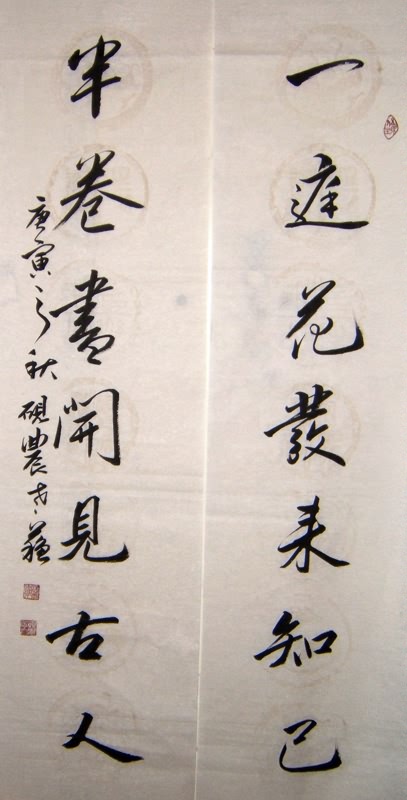 一庭花發来知己
半卷書開見古人
庚寅之秋硯農